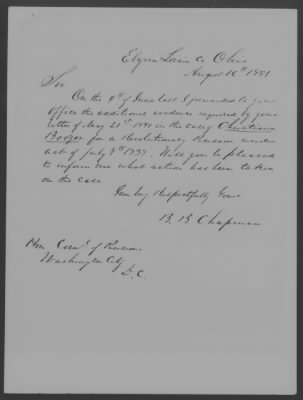 Elyria Lorain Co Ohio
August 16th 1851
Sir
On the 9th of June last I forwarded to your
office the additional evidence required by your
letter of May 21st 1851 in the case of Christiana
Boozer for a Revolutionary Pension under
act of July 7th 1838. Will you be pleased
to inform me what action has been taken
on the case
I am very Respectfully Yours
B. B. Chapman
Hon Comr of Pensions
Washington City
D.C.